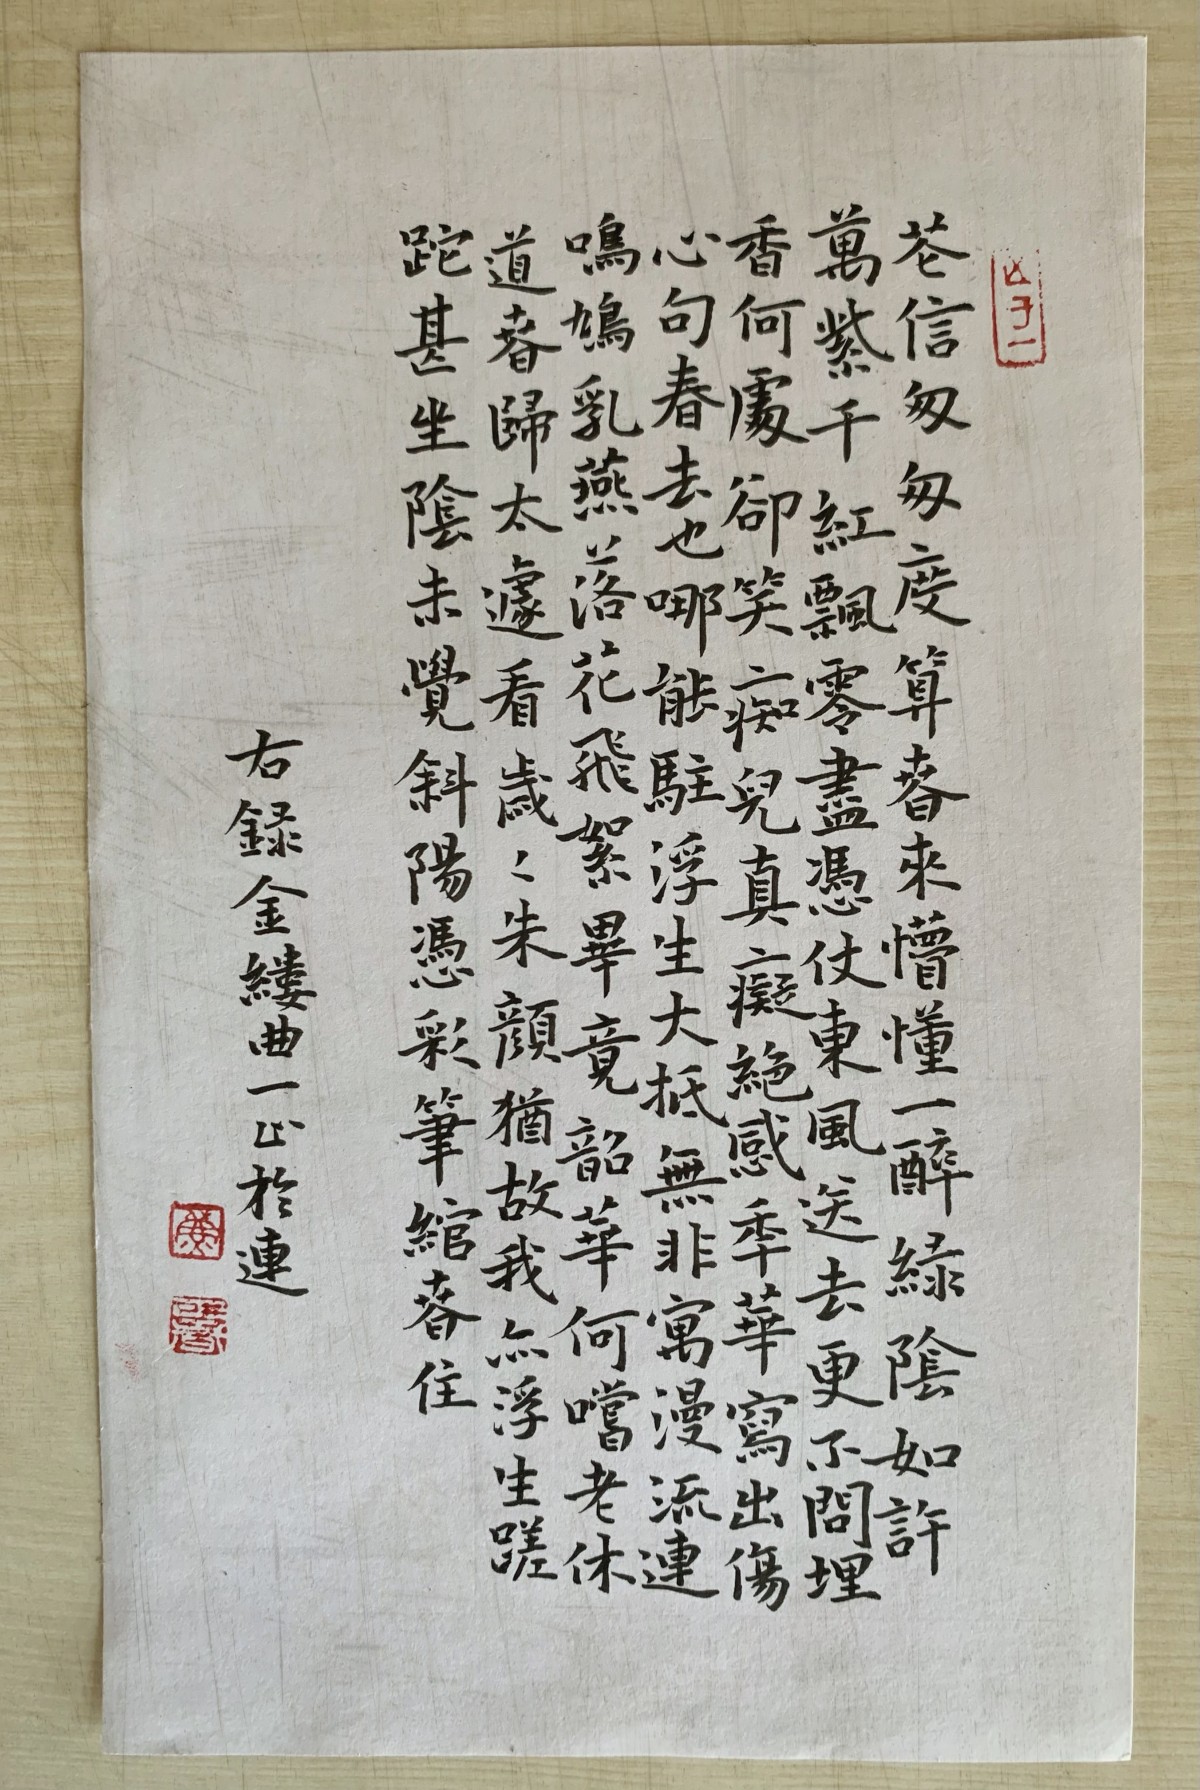 芲信匆匆度算萅來懵懂一醉緑陰如許
萬紫千紅飄零盡憑仗東風送去更不問埋
香何處卻笑痴兒真癡絕感秊華寫出傷
心句春去也哪能駐浮生大抵無非寓漫流連
鳴鳩乳燕落花飛絮畢竟韶華何嚐老休
道萅歸太遽看歲々朱顏猶故我亦浮生蹉
跎甚坐陰未覺斜陽憑彩筆綰萅住
右録金縷曲一正於連